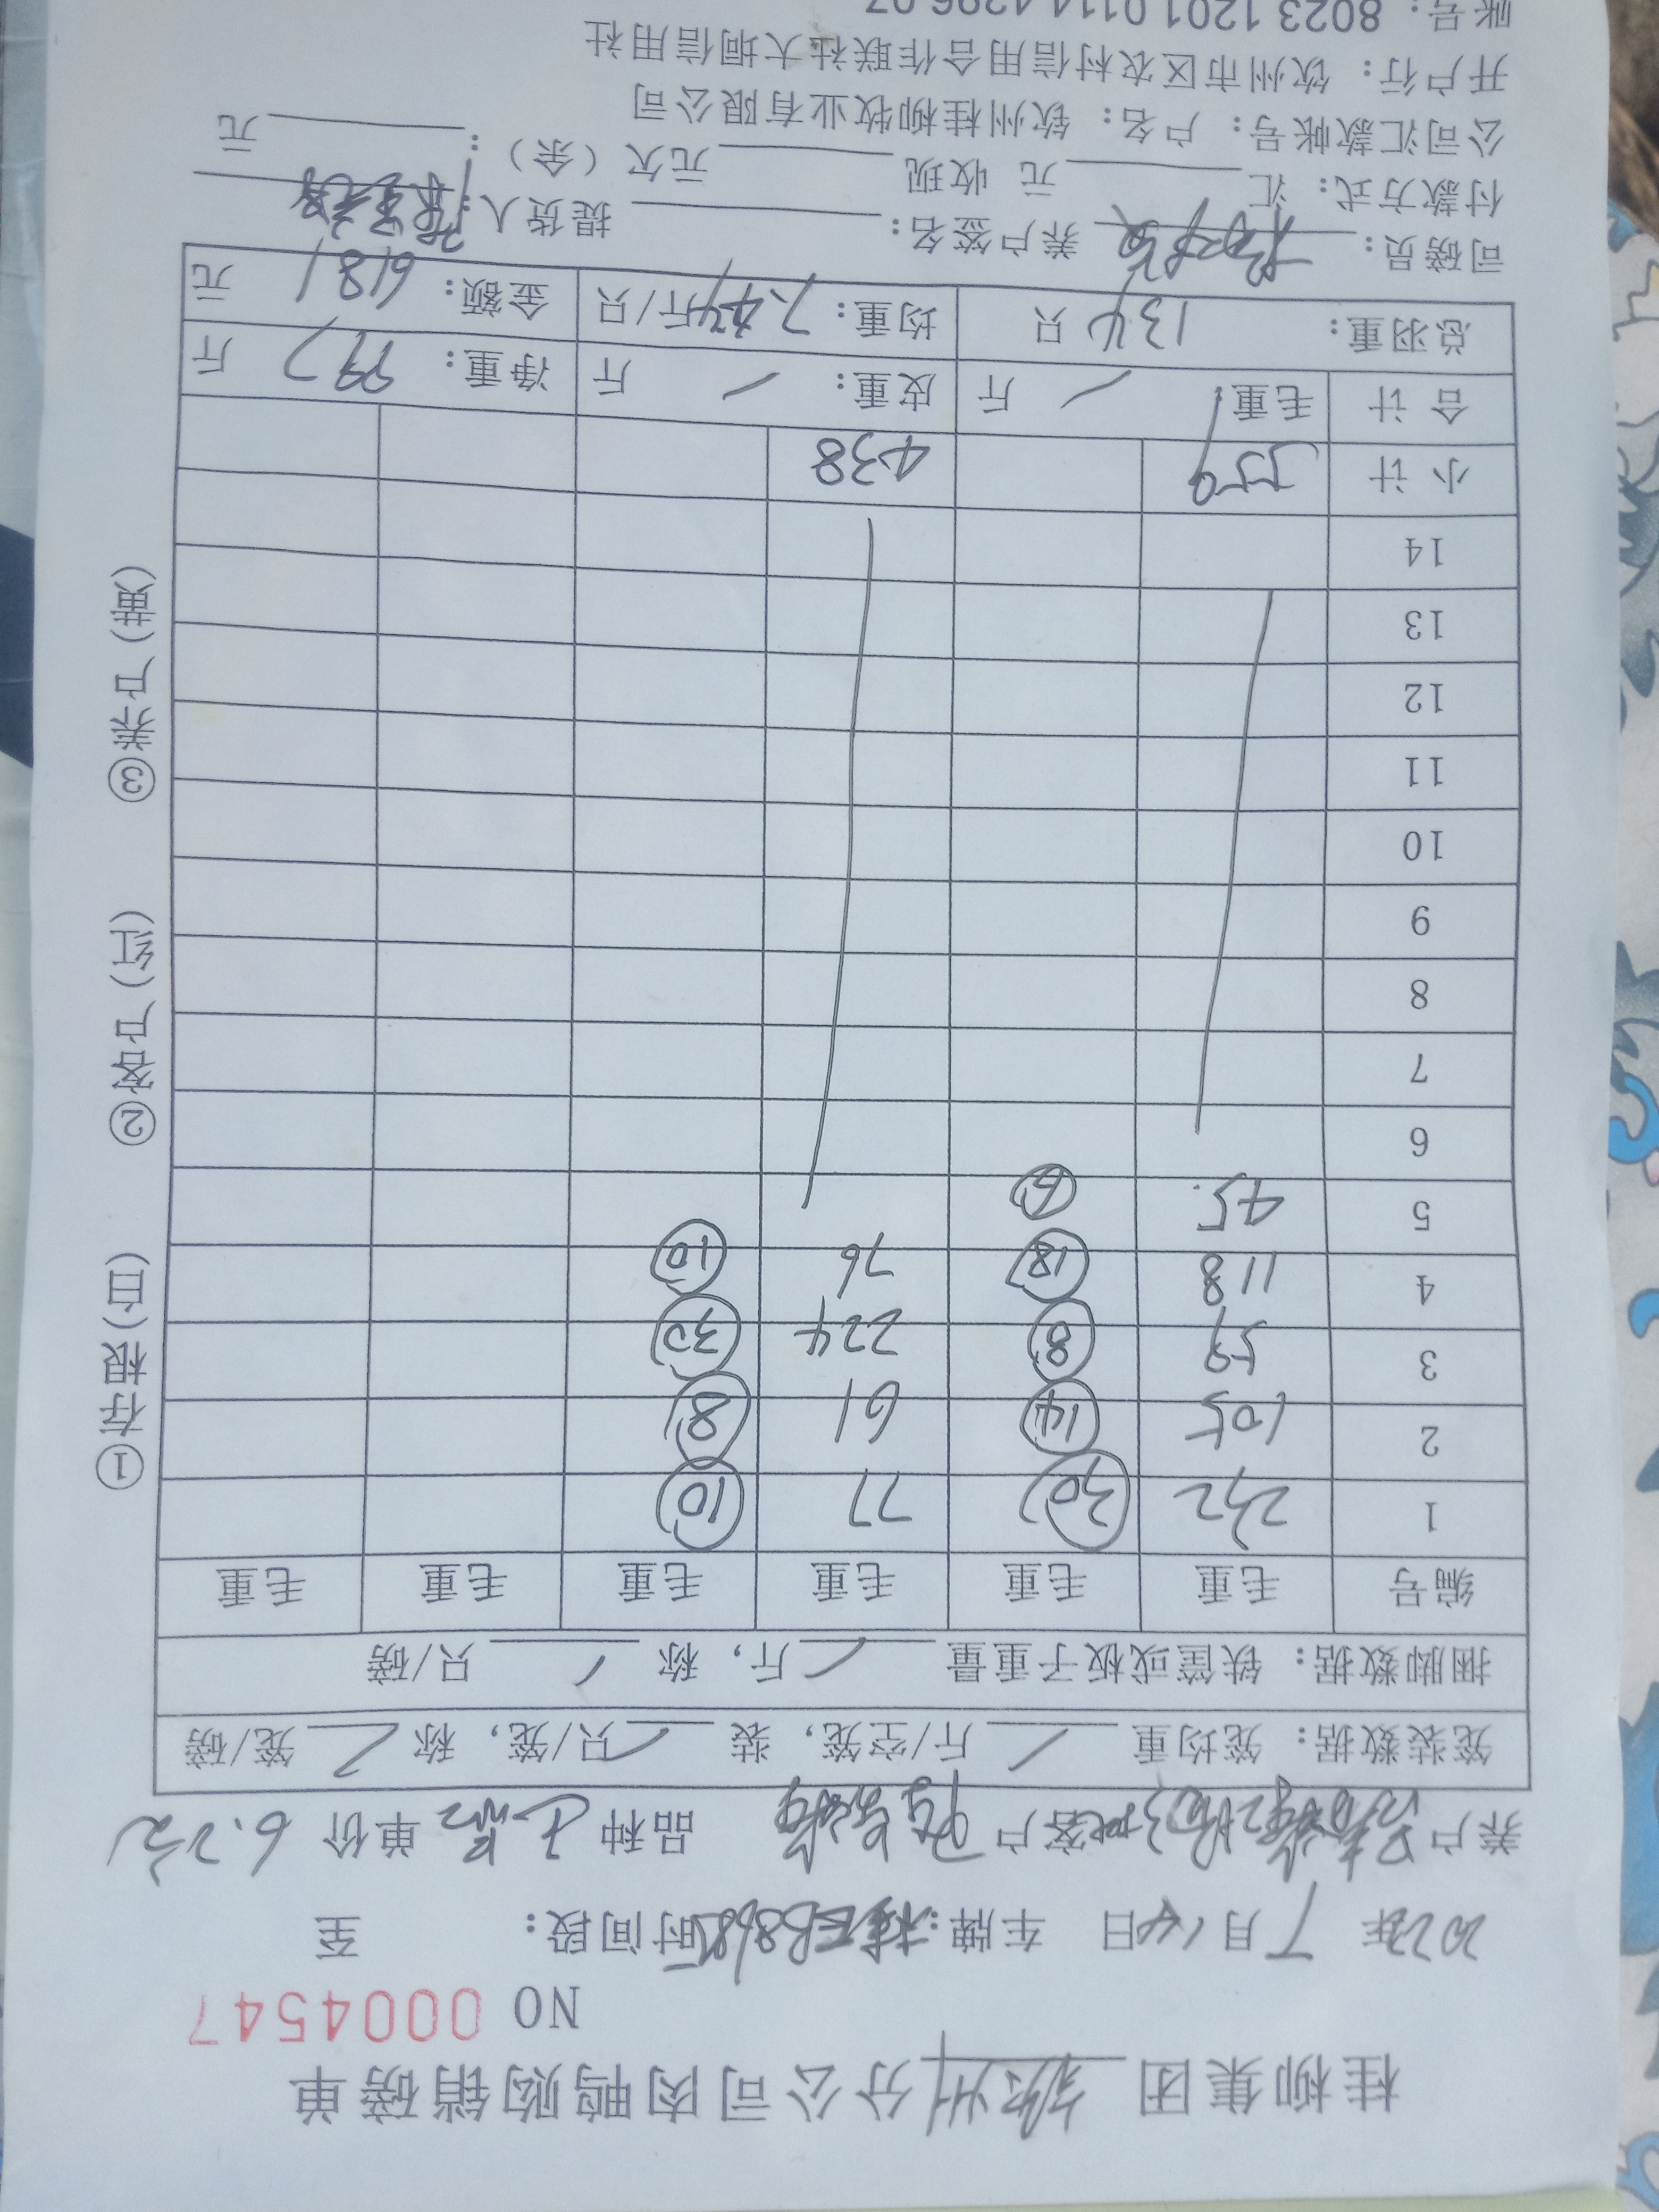 桂柳集团 钦州 分公司肉鸭购销磅单
NO 0004547
2022年 7月14日 车牌: 时间段: 至
养户 客户 品种 单价 6.2元
笼装数据: 笼均重 斤/空笼, 装 只/笼, 称 笼/磅
捆脚数据: 铁筐或板子重量 斤, 称 只/磅
编号 毛重 毛重 毛重 毛重 毛重 毛重
1 232 30 77 10
2 105 14 61 8
3 59 8 224 30
4 118 18 76 10
5 45 6
6
7
8
9
10
11
12
13
14
小计 559 438
合计 毛重 斤 皮重: 斤 净重: 997 斤
总羽重: 134 只 均重: 7.44 斤/只 金额: 6181 元
司磅员: 养户签名: 提货人:
付款方式: 汇 元 收现 元欠(余): 元
公司汇款帐号: 户名: 钦州桂柳牧业有限公司
开户行: 钦州市区农村信用合作联社大垌信用社
账号: 8023 1201 0114 4296 07
①存根(白) ②客户(红) ③养户(黄)